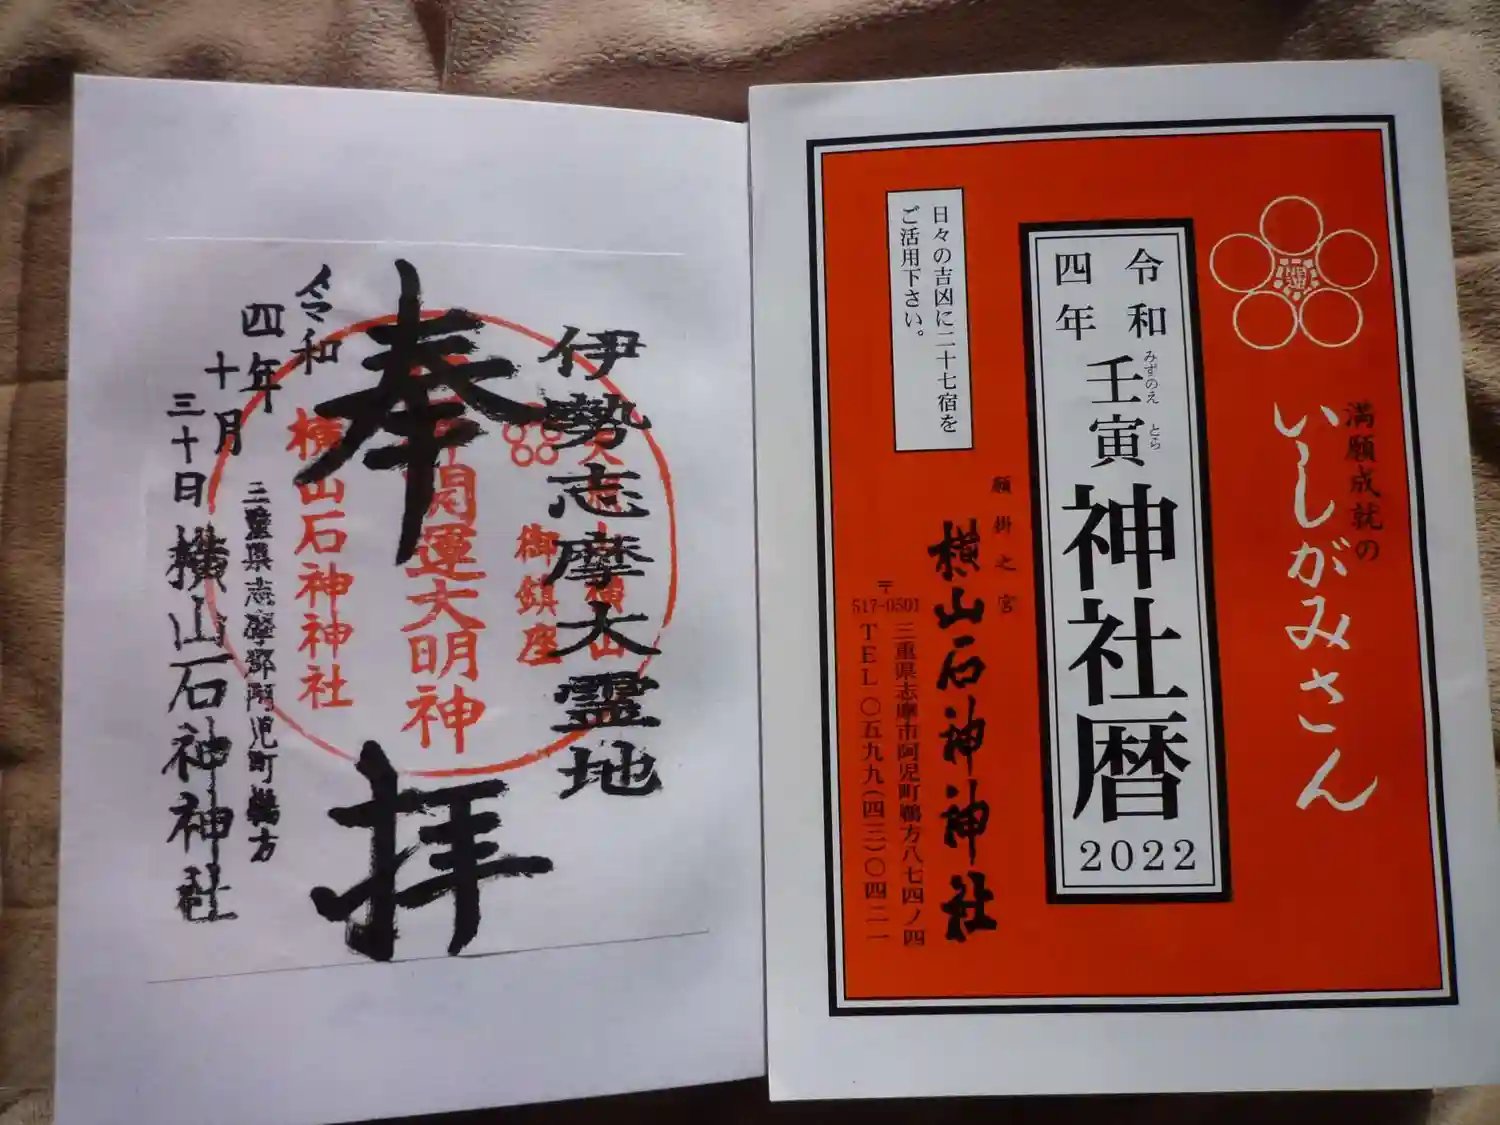 伊勢志摩大霊地
奉拝
開運大明神
御鎮座
横山石神神社
令和
四年
十月
三十日
三重県志摩郡阿児町鵜方
横山石神神社
満願成就の
いしがみさん
令和
四年
壬寅
みずのえ
とら
神社暦
2022
日々の吉凶に二十七宿を
ご活用下さい。
願掛之宮
横山石神神社
〒
517-0501
三重県志摩市阿児町鵜方八七四ノ四
TEL〇五九九(四三)〇四二一